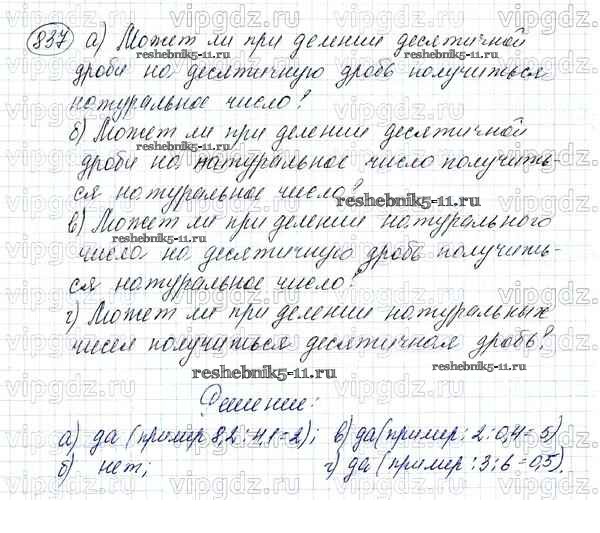 837 а) Может ли при делении десятичной
дроби на десятичную дробь получиться
reshebnik5-11.ru
натуральное число?
б) Может ли при делении десятичной
дроби на натуральное число получить-
reshebnik5-11.ru
ся натуральное число?
reshebnik5-11.ru
в) Может ли при делении натурального
reshebnik5-11.ru
числа на десятичную дробь получить-
ся натуральное число?
reshebnik5-11.ru
г) Может ли при делении натуральных
чисел получиться десятичная дробь?
reshebnik5-11.ru
reshebnik5-11.ru
Решение:
а) да (пример 8,2:4,1=2); в) да (пример: 2:0,4=5)
б) нет; г) да (пример: 3:6=0,5).